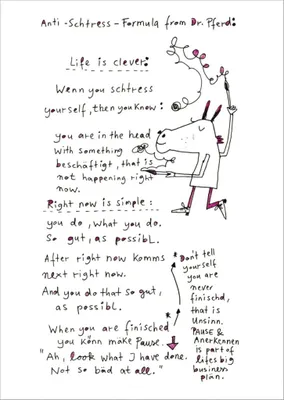 Anti-Schtress-Formula from Dr. Pferd:
Life is clever:
Wenn you schtress
yourself, then you know:
you are in the head
with something
beschäftigt, that is
not happening right
now.
Right now is simple:
you do, what you do.
So gut, as possibl.
After right now komms
next right now.
And you do that so gut,
as possibl.
When you are finisched
you könn make Pause.
"Ah, look what I have done.
Not so bäd at all."
* Don't tell
yourself
you are
never
finischd,
that is
Unsinn.
PAUSE &
Anerkennen
is part of
lifes big
business
plän.
*